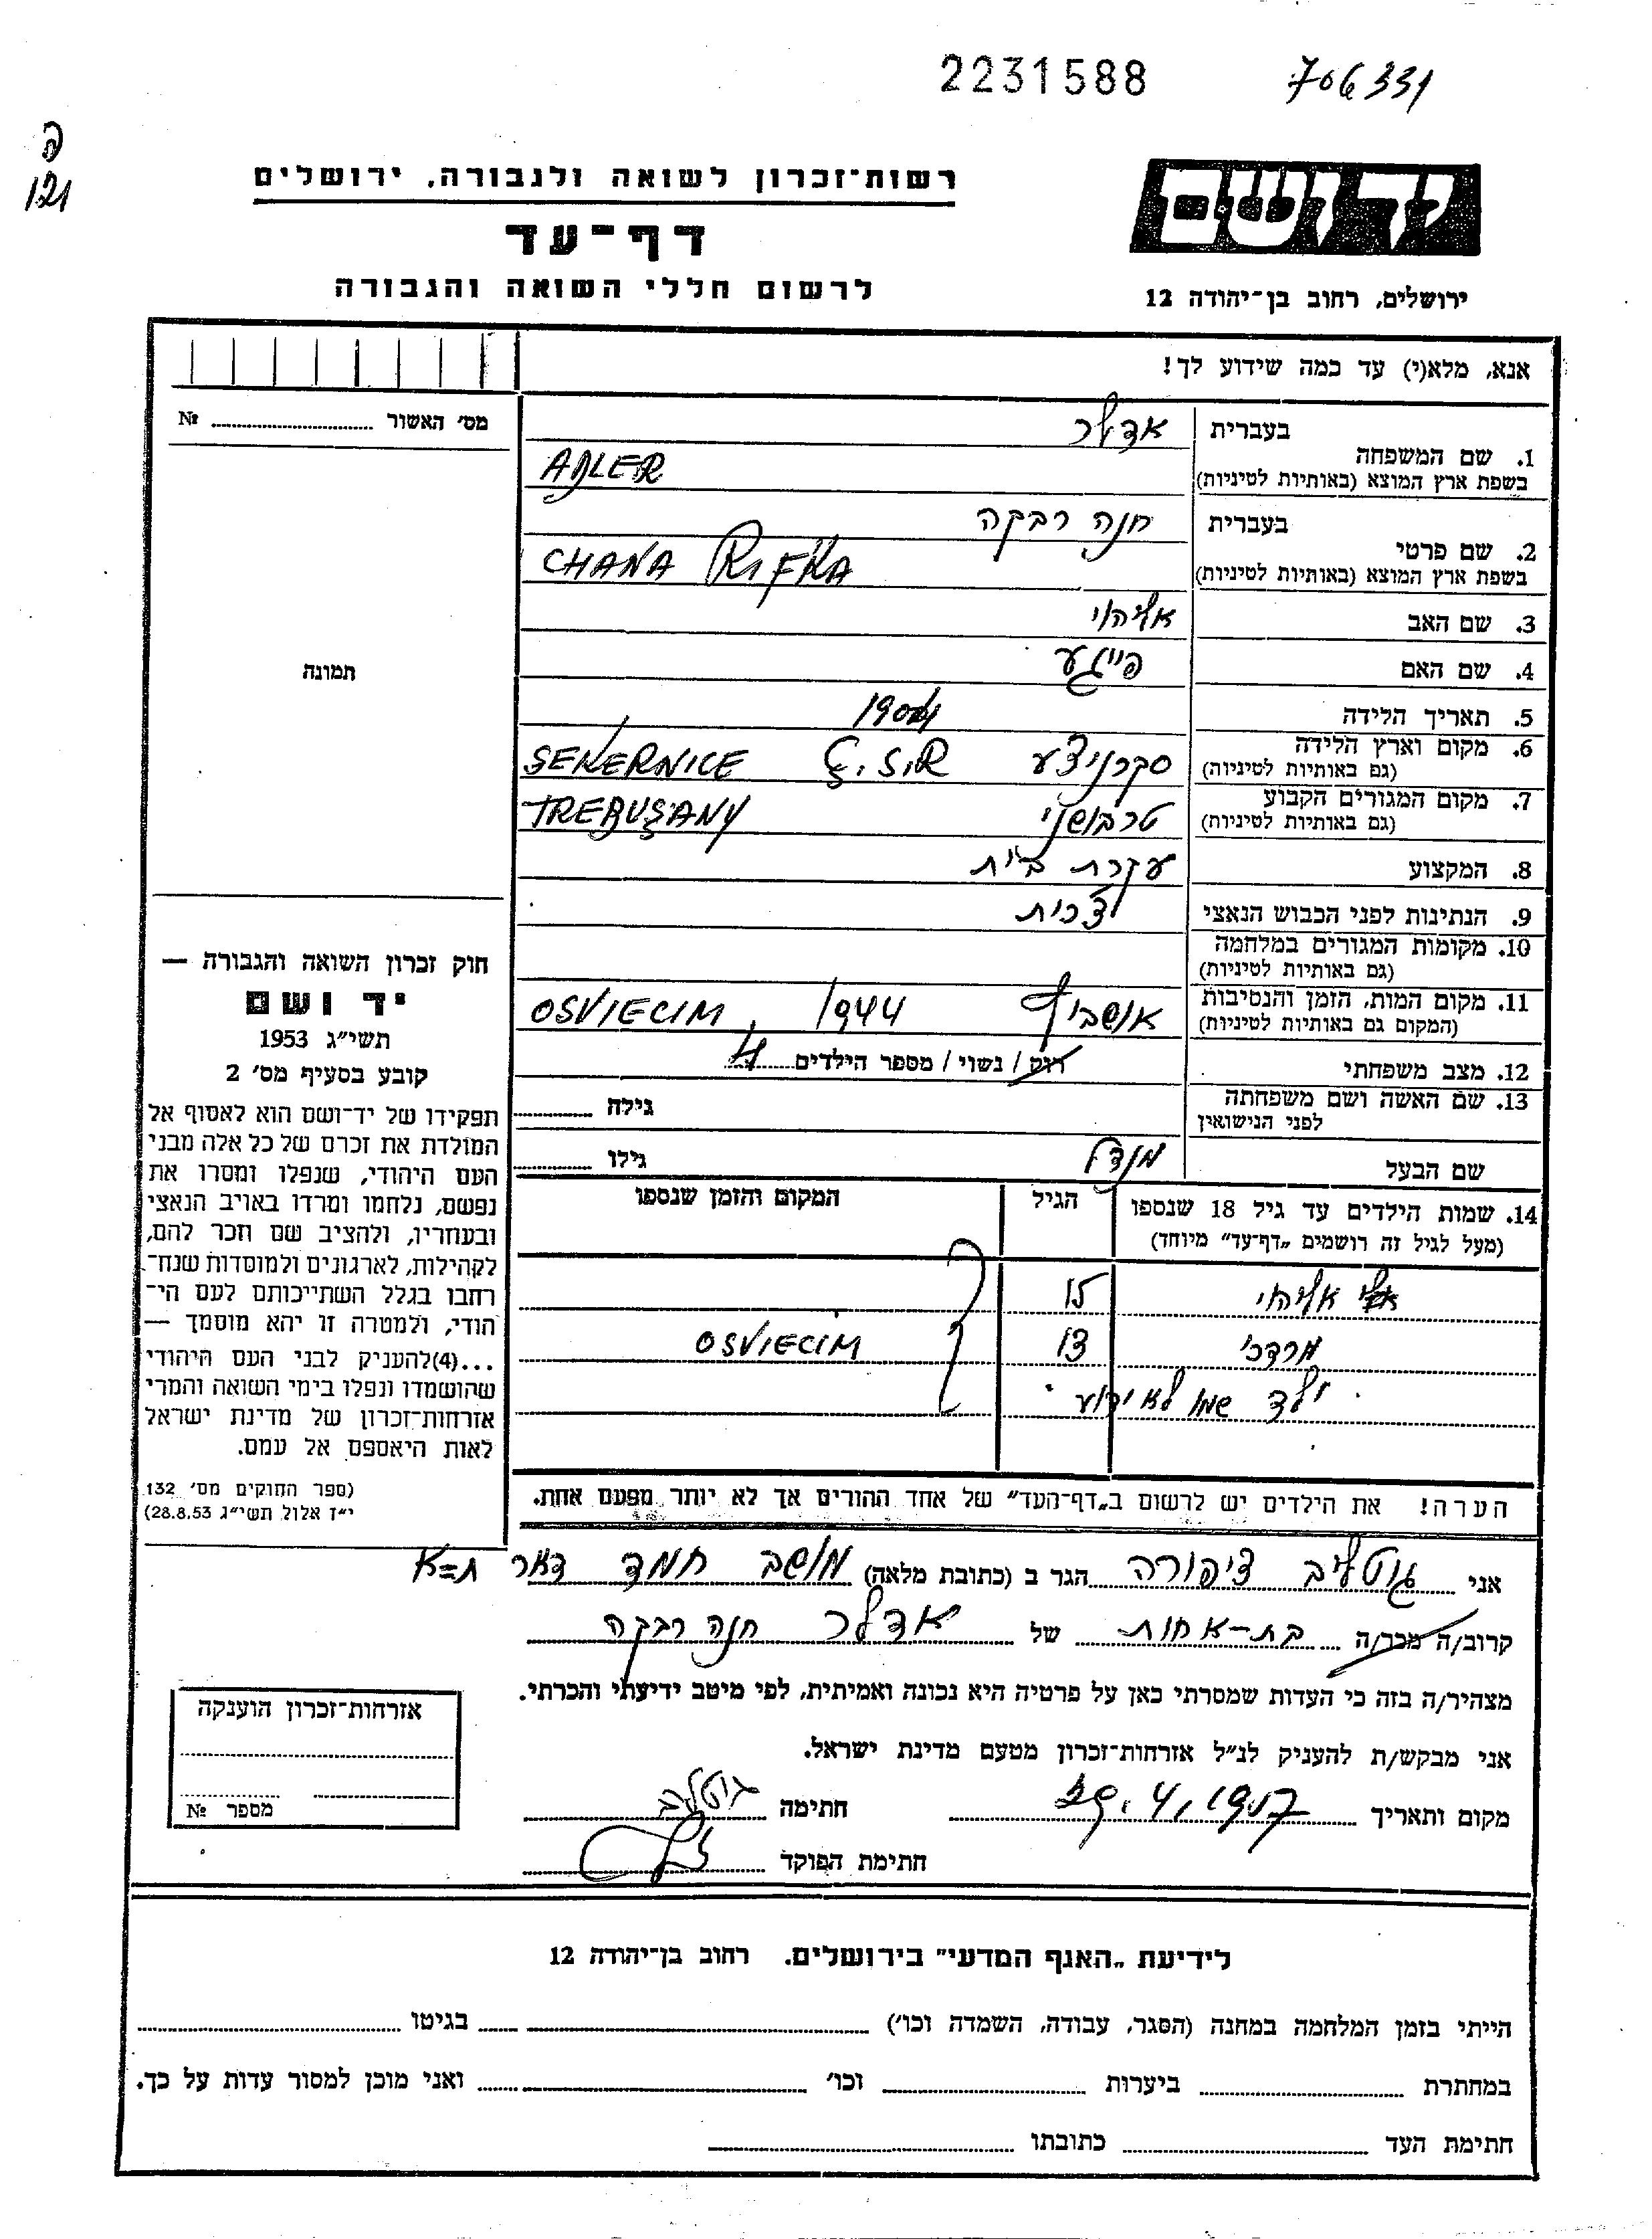 2231588
706331
ק
121
יד ושם
ירושלים, רחוב בן־יהודה 12
רשות־זכרון לשואה ולגבורה, ירושלים
דף־עד
לרשום חללי השואה והגבורה
אנא, מלא(י) עד כמה שידוע לך!
מס׳ האשור № 
תמונה
1. שם המשפחה בעברית אדלר
בשפת ארץ המוצא (באותיות לטיניות) ADLER
2. שם פרטי בעברית חנה רבקה
בשפת ארץ המוצא (באותיות לטיניות) CHANA RIFKA
3. שם האב אליהו
4. שם האם פייגע
5. תאריך הלידה
6. מקום וארץ הלידה סקרניצע Č.S.R. SEKERNICE
(גם באותיות לטיניות)
7. מקום המגורים הקבוע טרבושני TREBUŞANY
(גם באותיות לטיניות)
8. המקצוע עקרת בית
9. הנתינות לפני הכבוש הנאצי צכית
10. מקומות המגורים במלחמה
(גם באותיות לטיניות)
11. מקום המות, הזמן והנסיבות אושביץ 1944 OSVIECIM
(המקום גם באותיות לטיניות)
12. מצב משפחתי רווק / נשוי / מספר הילדים 4
13. שם האשה ושם משפחתה גילה
לפני הנישואין
שם הבעל מנדל גילו
14. שמות הילדים עד גיל 18 שנספו הגיל המקום והזמן שנספו
(מעל לגיל זה רושמים „דף־עד” מיוחד)
אליהו 15
מרדכי 13 OSVIECIM
ילד שמו לא ידוע
הערה! את הילדים יש לרשום ב„דף־העד” של אחד ההורים אך לא יותר מפעם אחת.
חוק זכרון השואה והגבורה —
יד ושם
תשי״ג 1953
קובע בסעיף מס׳ 2
תפקידו של יד־ושם הוא לאסוף אל
המולדת את זכרם של כל אלה מבני
העם היהודי, שנפלו ומסרו את
נפשם, נלחמו ומרדו באויב הנאצי
ובעוזריו, ולהציב שם וזכר להם,
לקהילות, לארגונים ולמוסדות שנח־
רחבו בגלל השתייכותם לעם הי־
הודי, ולמטרה זו יהא מוסמך —
...(4)להעניק לבני העם היהודי
שהושמדו ונפלו בימי השואה והמרי
אזרחות־זכרון של מדינת ישראל
לאות היאספם אל עמם.
(ספר החוקים מס׳ 132
י״ז אלול תשי״ג 28.8.53)
אני גוטליב ציפורה הגר ב (כתובת מלאה) מושב חמד דאר ת=א
קרוב/ה מכר/ה בת-אחות של אדלר חנה רבקה
מצהיר/ה בזה כי העדות שמסרתי כאן על פרטיה היא נכונה ואמיתית, לפי מיטב ידיעתי והכרתי.
אני מבקש/ת להעניק לנ״ל אזרחות־זכרון מטעם מדינת ישראל.
מקום ותאריך חתימה גוטליב
חתימת הפוקד
אזרחות־זכרון הוענקה
מספר №
לידיעת „האגף המדעי” בירושלים. רחוב בן־יהודה 12
הייתי בזמן המלחמה במחנה (הסגר, עבודה, השמדה וכו׳) בגיטו
במחתרת ביערות וכו׳ ואני מוכן למסור עדות על כך.
חתימת העד כתובתו